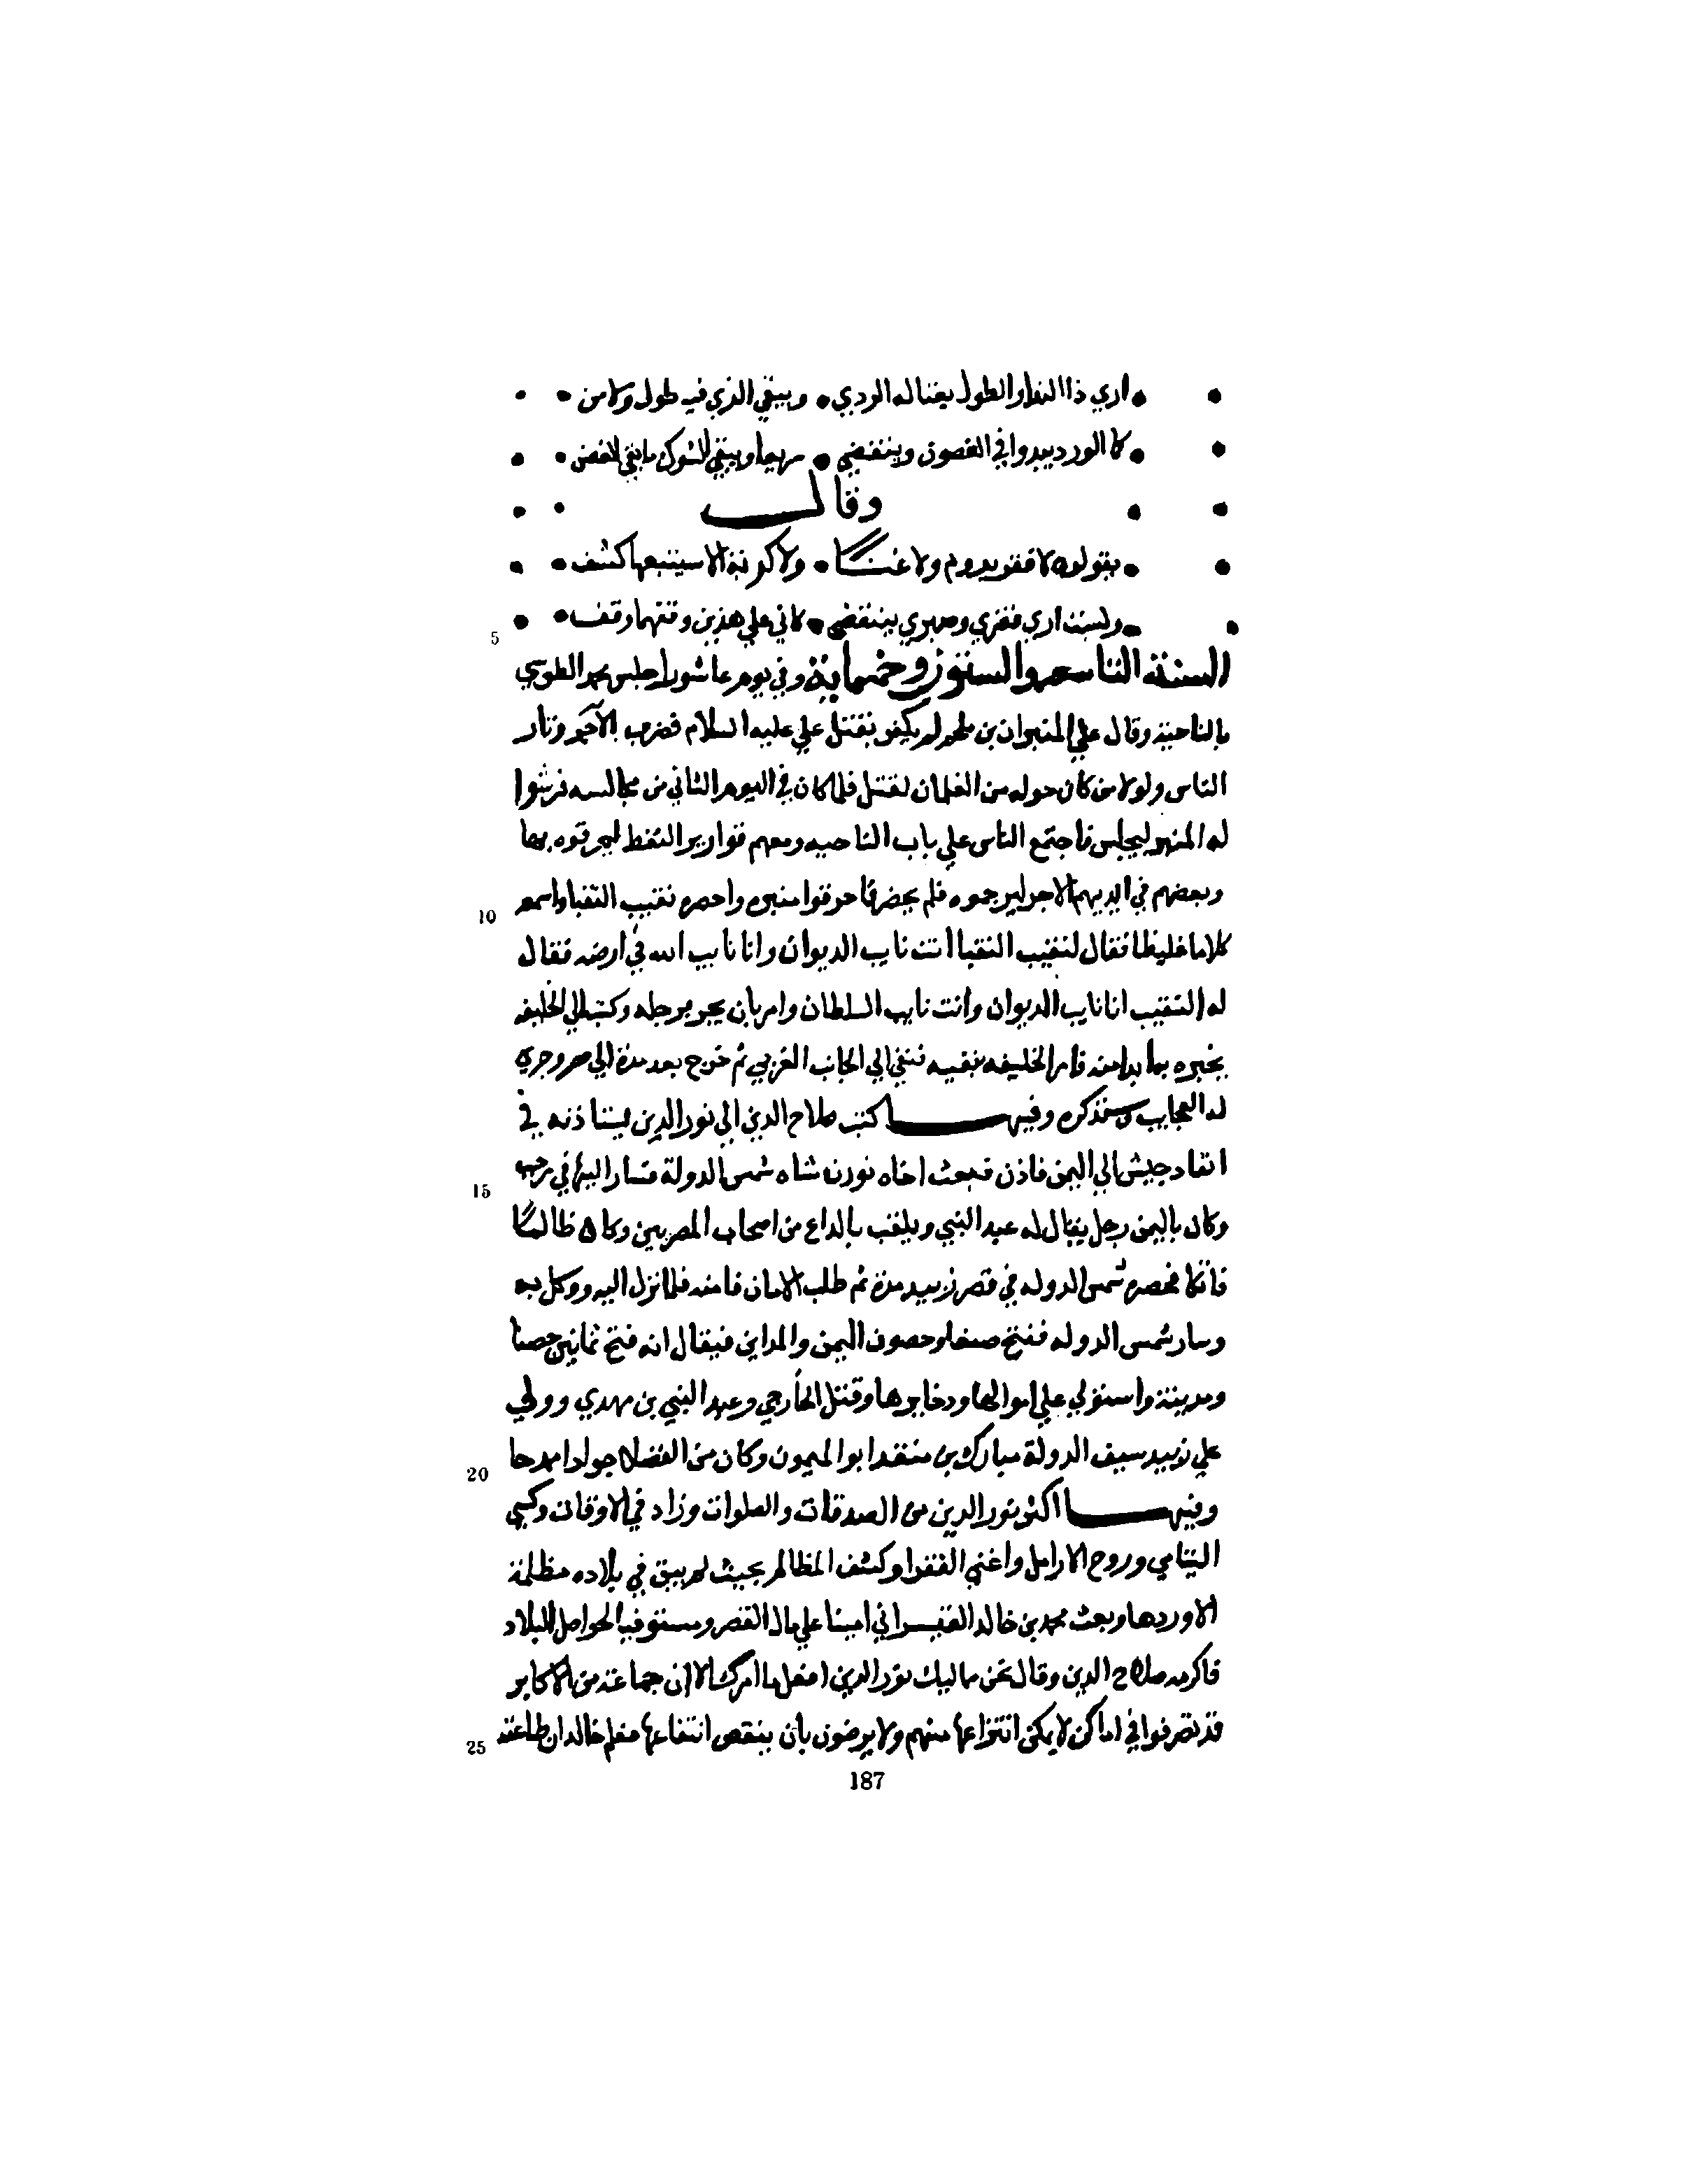 اري ذا الندا والطول يغتاله الردي • ويبقي الذي فيه طول ولا من
كما الورد يبدوا في الغصون وينقضي • سريعا ويبقي الشوك ما بقي الغصن
وقال
يقولون لا فقر يدوم ولا غنا • ولا كربة الا سيتبعها كشف
ولست اري فقري وصبري ينقضي • كاني علي هذين وقتهما وقف
5
السنة التاسعه والستون وخمسماية وفي يوم عاشورا جلس محمد الطوسي
بالتاجية وقال علي المنبر ان بن ملجم لم يكفر بقتل علي عليه السلام فضرب بالآجر وثار
الناس ولولا من كان حوله من الغلمان لقتل فلما كان في اليوم الثاني من مجالسه فرشوا
له المنبر ليجلس فاجتمع الناس علي باب التاجيه ومعهم قوارير النفط ليحرقوه بها
وبعضهم في ايديهم الاجر ليرجموه فلم يحضر فاحرقوا منبره واحضره نقيب النقبا واسمعه
10
كلاما غليظا فقال لنقيب النقبا انت نايب الديوان وانا نايب الله في ارضه فقال
له النقيب انا نايب الديوان وانت نايب السلطان وامر بان يجر برجله وكتب الي الخليفه
يخبره بما بدا منه فامر الخليفه بنفيه فنفي الي الجانب الغربي ثم خرج بعد مدة الي مصر وجري
له العجايب وسنذكره وفيها كتب صلاح الدين الي نور الدين يستاذنه في
انفاد جيش الي اليمن فاذن فبعث اخاه توران شاه شمس الدولة فسار اليها في رجب
15
وكان باليمن رجل يقال له عبد النبي ويلقب بالداع من اصحاب المصريين وكان ظالما
فاتكا فحصره شمس الدوله في قصر زبيد مدة ثم طلب الامان فامنه فلما نزل اليه ووكل به
وسار شمس الدوله ففتح صنعا وحصون اليمن والمداين فيقال انه فتح ثمانين حصنا
ومدينة واستولي علي اموالها ودخايرها وقتل الخارجي وعبد النبي بن مهدي وولي
علي زبيد سيف الدولة مبارك بن منقد ابو الميمون وكان من الفضلا جوادا ممدحا
20
وفيها اكثر نور الدين من الصدقات والصلوات وزاد في الاوقات وكسي
اليتامي وزوج الارامل واغني الفقرا وكشف المظالم بحيث لم يبق في بلاده مظلمة
الا وردها وبعث محمد بن خالد القيسراني امينا علي مال القصر ومستوفيا لحواصل البلاد
فاكرمه صلاح الدين وقال نحن مماليك نور الدين افعل ما امرك الا ان جماعة من الاكابر
قد تصرفوا في اماكن لا يمكن انتزاعها منهم ولا يرضون بان ينقص انتفاعها فعلم خالد ان طاعته
25
187